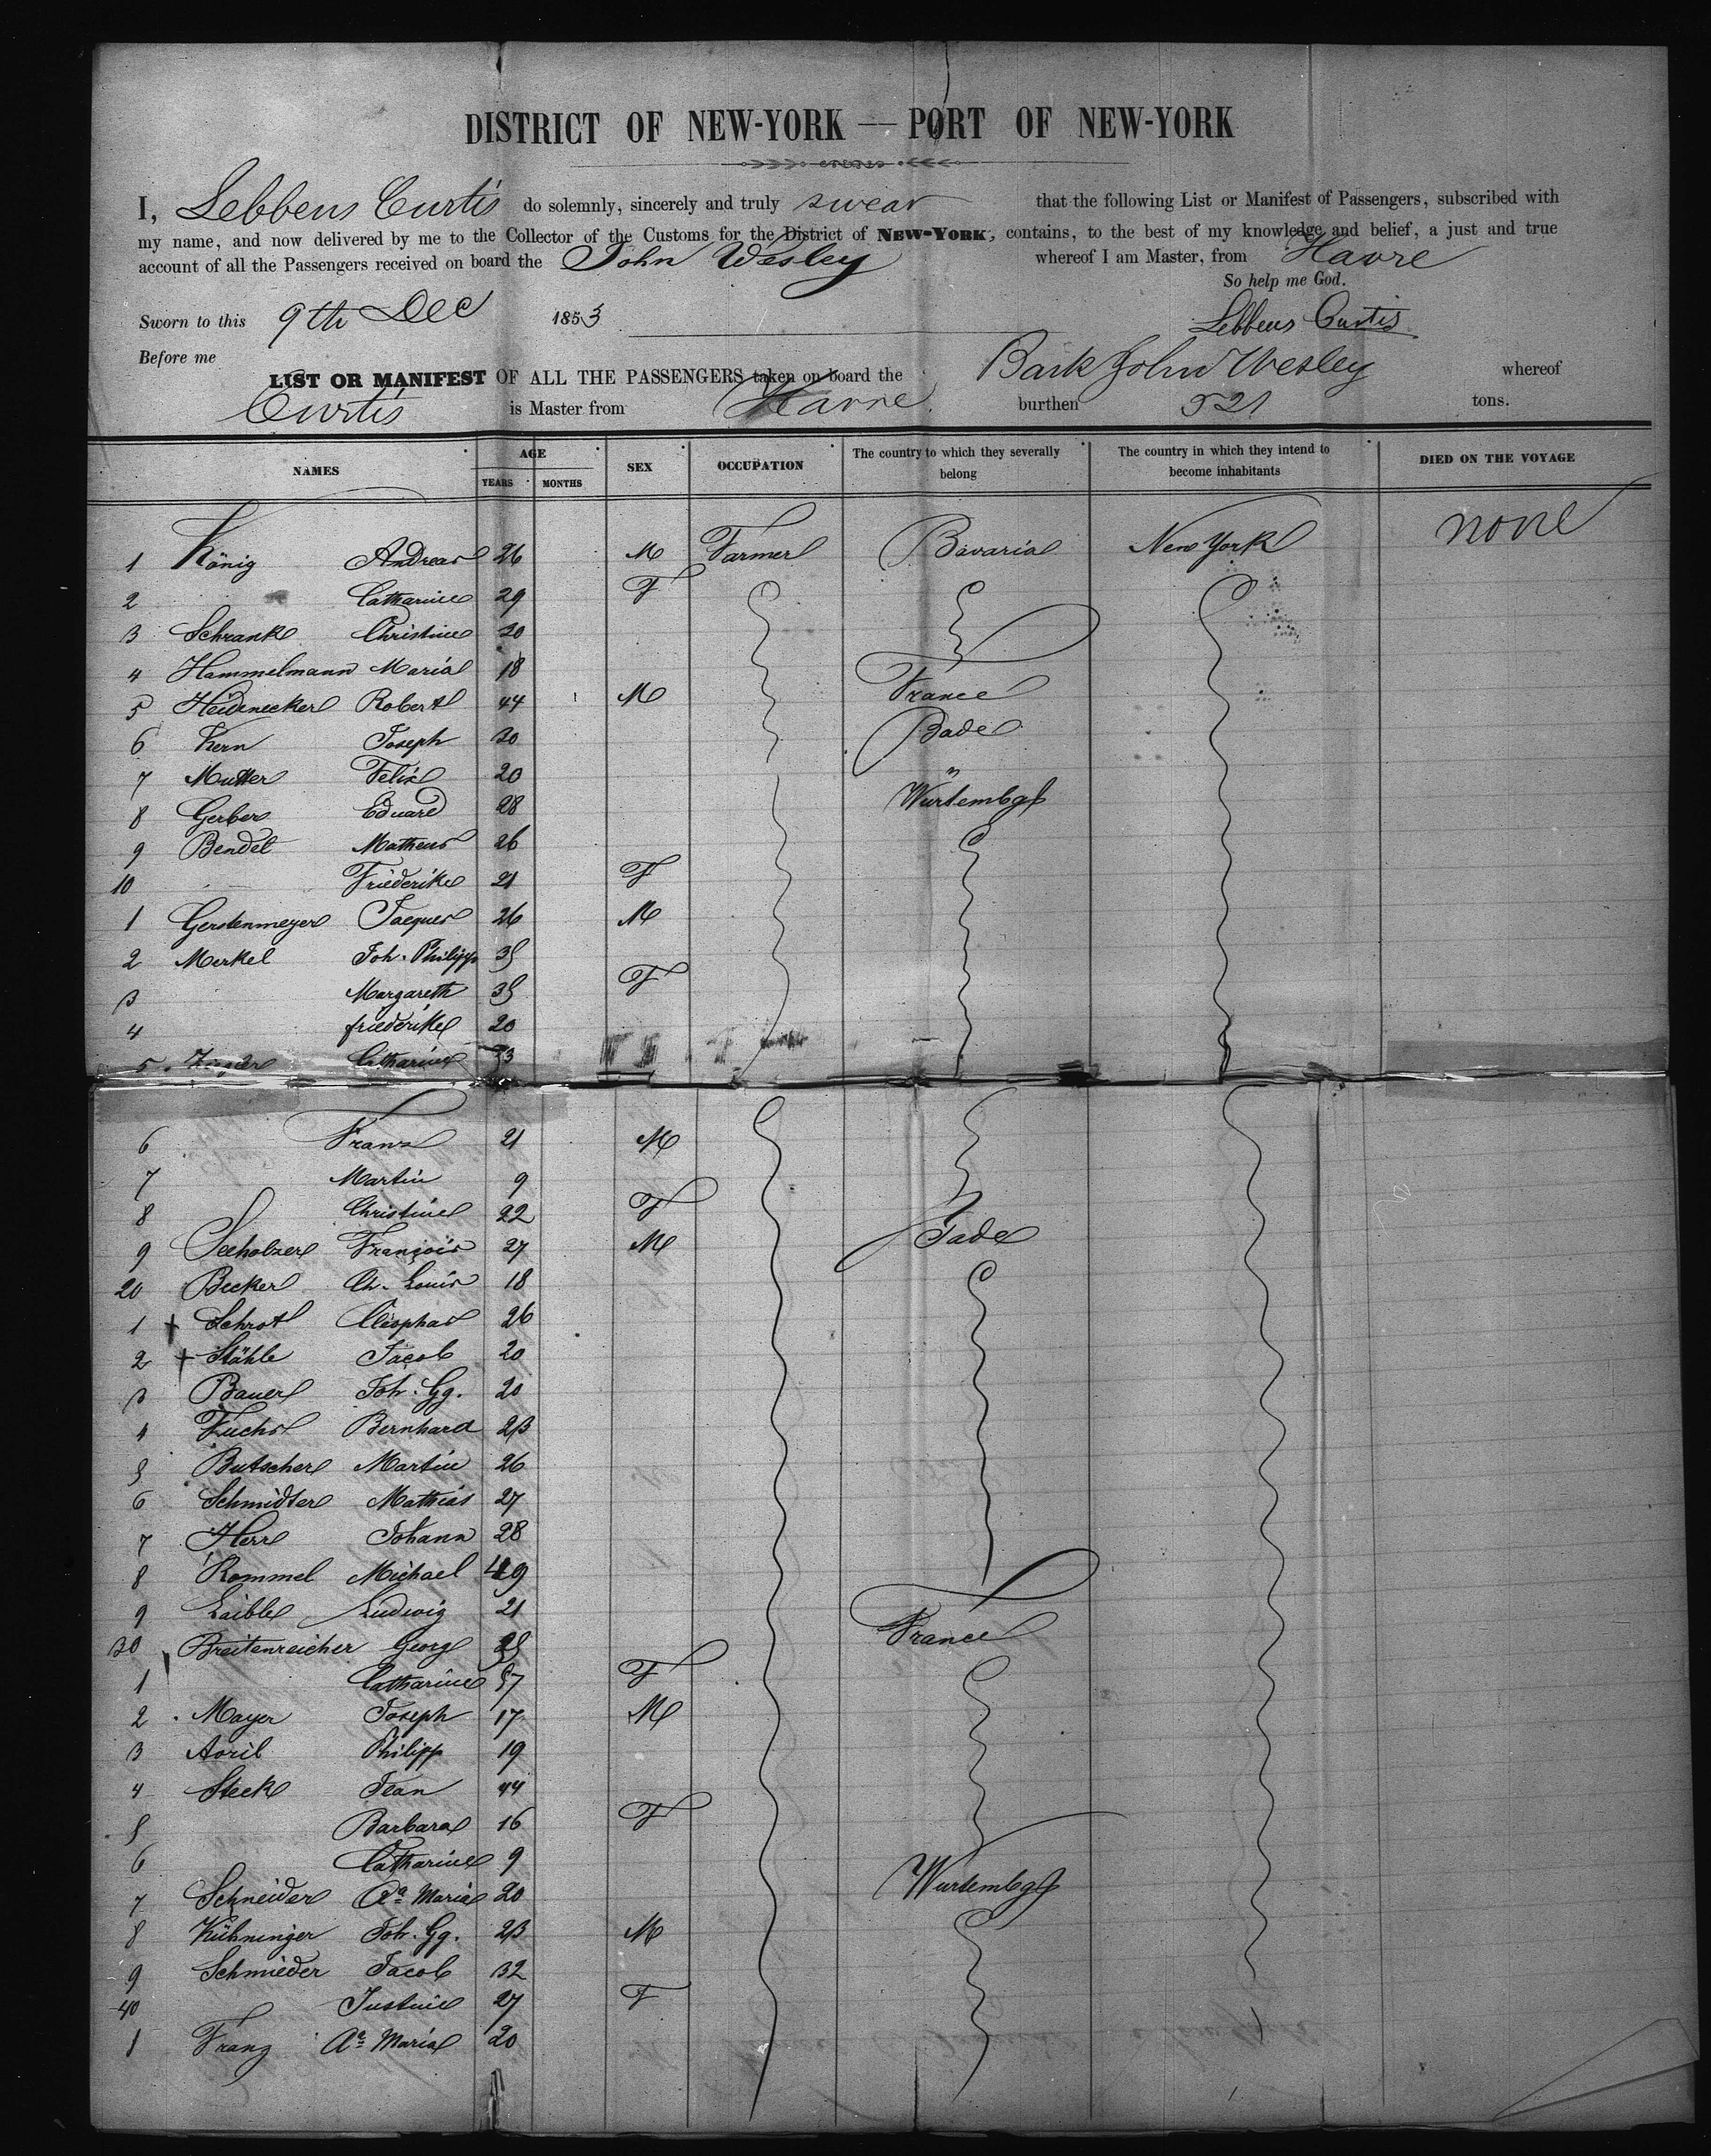 DISTRICT OF NEW-YORK — PORT OF NEW-YORK
I, Lebbens Curtis do solemnly, sincerely and truly swear that the following List or Manifest of Passengers, subscribed with
my name, and now delivered by me to the Collector of the Customs for the District of NEW-YORK, contains, to the best of my knowledge and belief, a just and true
account of all the Passengers received on board the John Wesley whereof I am Master, from Havre
So help me God.
Sworn to this 9th Dec 1853 Lebbens Curtis
Before me
LIST OR MANIFEST OF ALL THE PASSENGERS taken on board the Bark John Wesley whereof
Curtis is Master from Havre burthen 521 tons.
NAMES AGE YEARS MONTHS SEX OCCUPATION The country to which they severally belong The country in which they intend to become inhabitants DIED ON THE VOYAGE
1 König Andreas 26 M Farmer Bavaria New York none
2 Catharine 29 F
3 Schrank Christine 30
4 Hammelmann Maria 18
5 Heidenecker Robert 44 M France
6 Kern Joseph 30 Bade
7 Mutter Felix 20 "
8 Gerber Eduard 28 Würtembg
9 Bendel Matheus 26
10 Friederike 21 F
1 Gerstenmeyer Jacques 26 M
2 Merkel Joh. Philipp 35
3 Margareth 35 F
4 friederike 20
5 Catharine
6 Franz 21 M
7 Martin 9
8 Christine 22 F
9 Seeholzer François 27 M Bade
20 Becker Ch. Louis 18
1 + Schrot Cleophas 26
2 + Stähle Jacob 20
3 Bauer Joh. Gg. 20
4 Fuchs Bernhard 23
5 Butscher Martin 26
6 Schmidter Mathias 27
7 Herr Johann 28
8 Rommel Michael 49
9 Laible Ludwig 21
30 Breitenreicher Georg France
1 Catharine 57 F
2 Mayer Joseph 17 M
3 Avril Philipp 19
4 Steck Jean 44
5 Barbara 16 F
6 Catharine 9
7 Schneider Aa Maria 20 Wurtembg
8 Kühninger Joh. Gg. 23 M
9 Schmieder Jacob 32
40 Justine 27 F
1 Franz Aa Maria 20